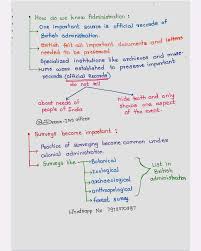 How do we know Administration :
One important source is official records of
British administration.
British felt all important documents and letters
needed to be preserved.
Specialized institutions like archives and muse-
ums were established to preserve important
records (official Records)
do not tell
about needs of
people of India
hide truth and only
show one
aspect of the
event.
Surveys become important :
Practice of surveying became common under
colonial administration.
Surveys like
Botanical
Zoological
archaeological
anthropological
forest survey
List in
British
administration